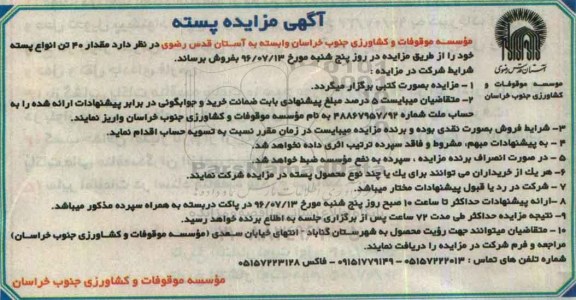 آگهی مزایده پسته
آستان قدس رضوی
موسسه موقوفات و
کشاورزی جنوب خراسان
مؤسسه موقوفات و کشاورزی جنوب خراسان وابسته به آستان قدس رضوی در نظر دارد مقدار ۴۰ تن انواع پسته
خود را از طریق مزایده در روز پنج شنبه مورخ ۹۶/۰۷/۱۳ بفروش برساند.
شرایط شرکت در مزایده :
۱- مزایده بصورت کتبی برگزار میگردد.
۲- متقاضیان میبایست ۵ درصد مبلغ پیشنهادی بابت ضمانت خرید و جوابگوئی در برابر پیشنهادات ارائه شده را به
حساب ملت شماره ۴۸۸۶۷۹۵۷/۹۲ به نام مؤسسه موقوفات و کشاورزی جنوب خراسان واریز نمایند.
۳- شرایط فروش بصورت نقدی بوده و برنده مزایده میبایست در زمان مقرر نسبت به تسویه حساب اقدام نماید.
۴- به پیشنهادات مبهم، مشروط و فاقد سپرده ترتیب اثری داده نخواهد شد.
۵- در صورت انصراف برنده مزایده ، سپرده به نفع مؤسسه ضبط خواهد شد.
۶- هر یک از خریداران می توانند برای یک یا چند نوع محصول پسته در مزایده شرکت نمایند.
۷- شرکت در رد یا قبول پیشنهادات مختار میباشد.
۸- ارائه پیشنهادات حداکثر تا ساعت ۱۰ صبح روز پنج شنبه مورخ ۹۶/۰۷/۱۳ در پاکت دربسته به همراه سپرده مذکور میباشد.
۹- نتیجه مزایده حداکثر طی مدت ۷۲ ساعت پس از برگزاری جلسه به اطلاع برنده خواهد رسید.
۱۰- متقاضیان میتوانند جهت رؤیت محصول به شهرستان گناباد - انتهای خیابان سعدی (مؤسسه موقوفات و کشاورزی جنوب خراسان)
مراجعه و فرم شرکت در مزایده را دریافت نمایند.
شماره تلفن های تماس : ۰۵۱۵۷۲۲۲۰۱۳ - ۰۹۱۵۱۷۷۹۱۴۹ - فاکس ۰۵۱۵۷۲۲۳۱۲۸
مؤسسه موقوفات و کشاورزی جنوب خراسان